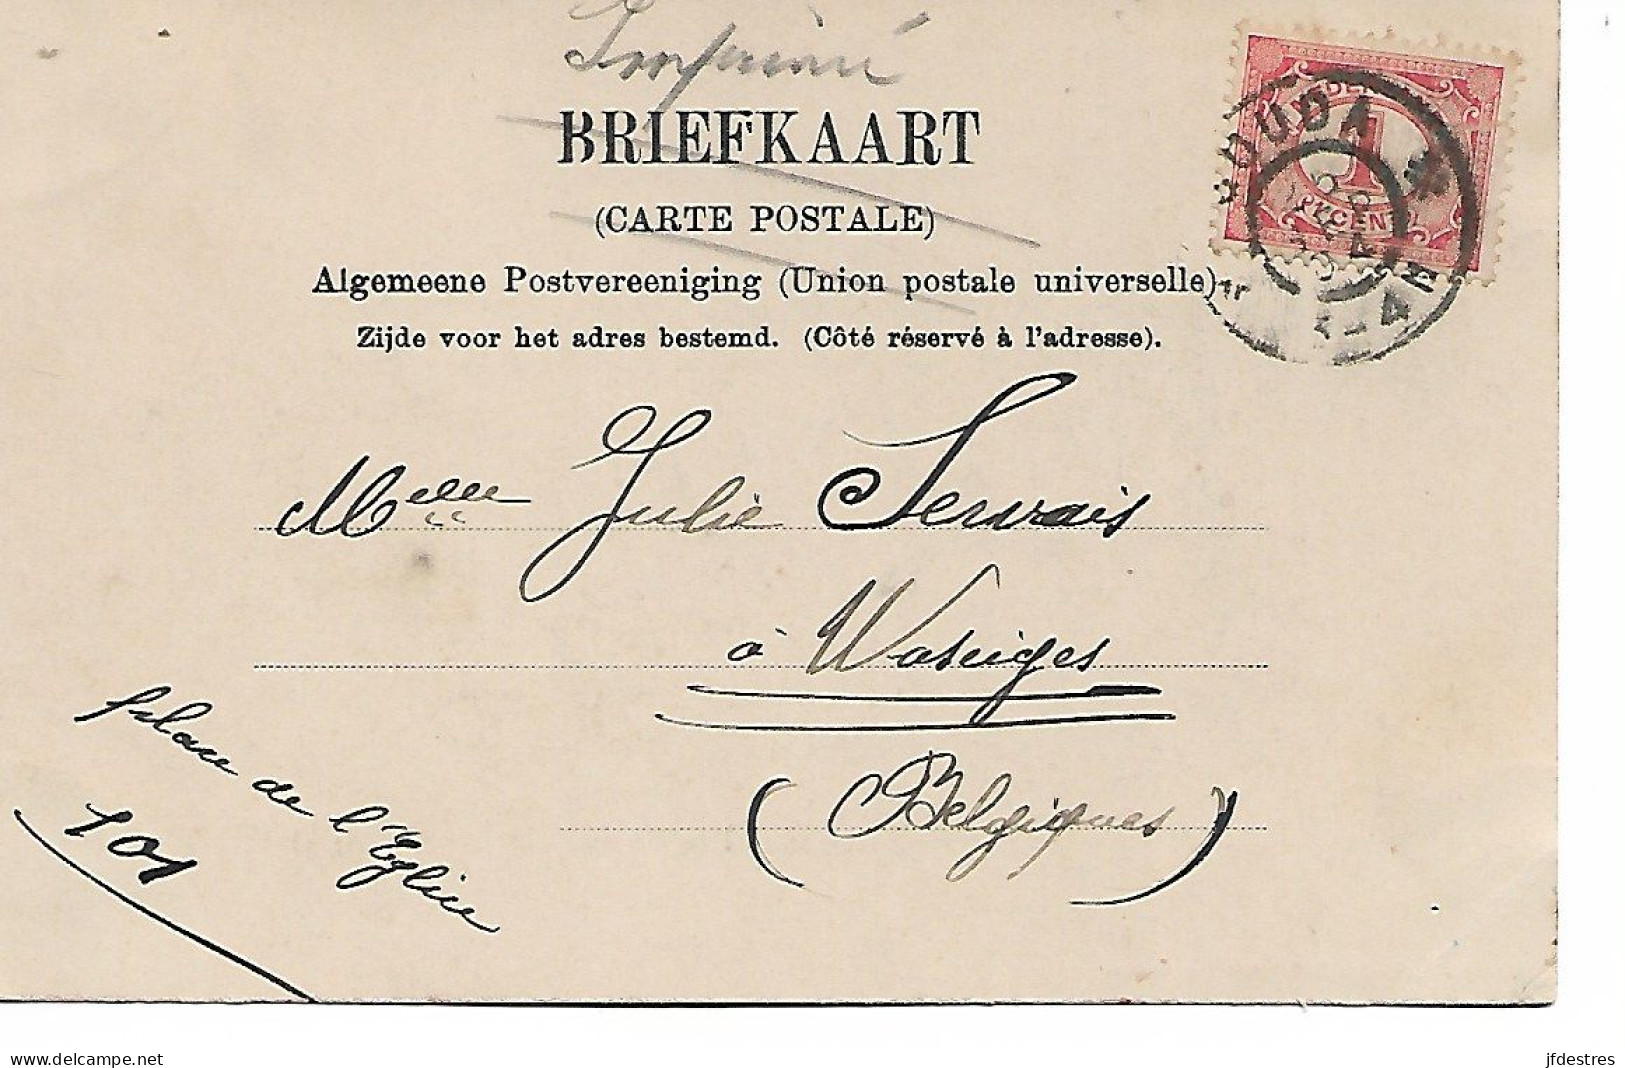 Imprimé
BRIEFKAART
(CARTE POSTALE)
Algemeene Postvereeniging (Union postale universelle)
Zijde voor het adres bestemd. (Côté réservé à l'adresse).
1
CENT
GOUDA
Melle Julie Servais
à Waseiges
(Belgiques)
place de l'Eglise
101
www.delcampe.net
jfdestres